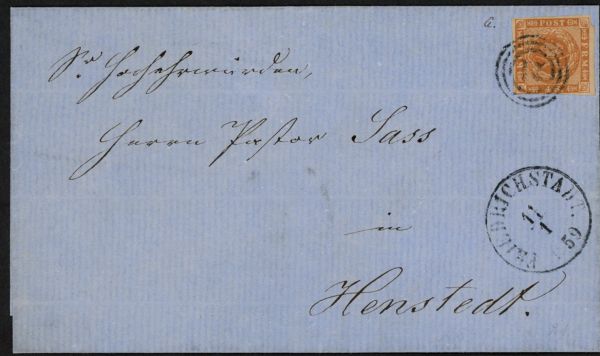 a.
POST
Sr. Hochehrwürden,
Herrn Pastor Sass
FRIEDRICHSTADT.
11
1
1859
in
Henstedt.